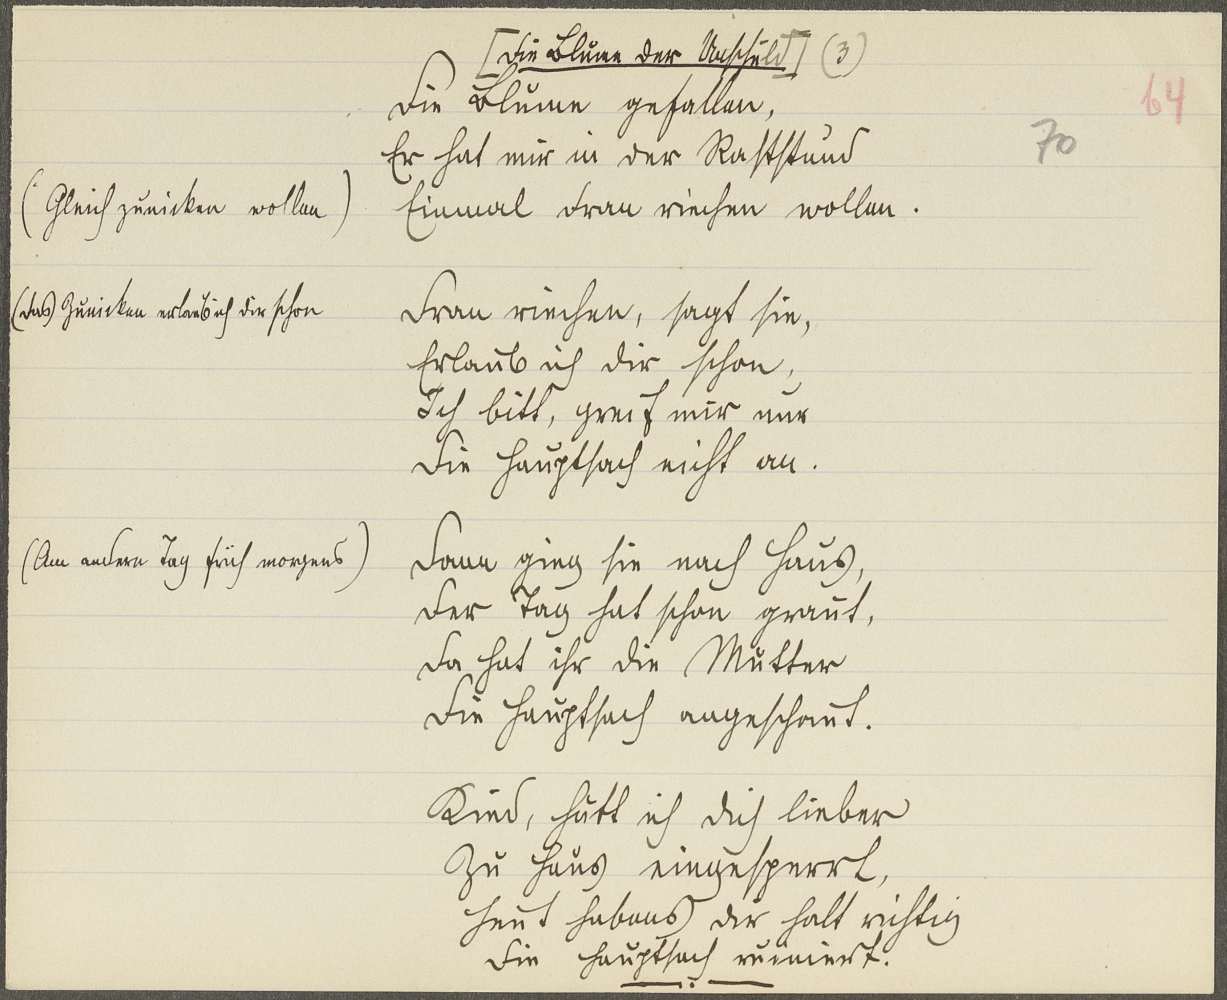 [Die Blume der Unschuld] (3)
64
Die Blume gefallen,
70
Er hat mir in der Raststund
(Gleich zunicken wollen) Einmal dran riechen wollen.
(das) Zunicken erlaub ich dir schon
Dran riechen, sagt sie,
Erlaub ich dir schon,
Ich bitt, greif mir nur
Die Hauptsach nicht an.
(Am andern Tag früh morgens) Dann ging sie nach Haus,
Der Tag hat schon graut,
Da hat ihr die Mutter
Die Hauptsach angeschaut.
Kind, hätt ich dich lieber
Zu Haus eingesperrt,
Heut habens dir halt richtig
Die Hauptsach ruiniert.